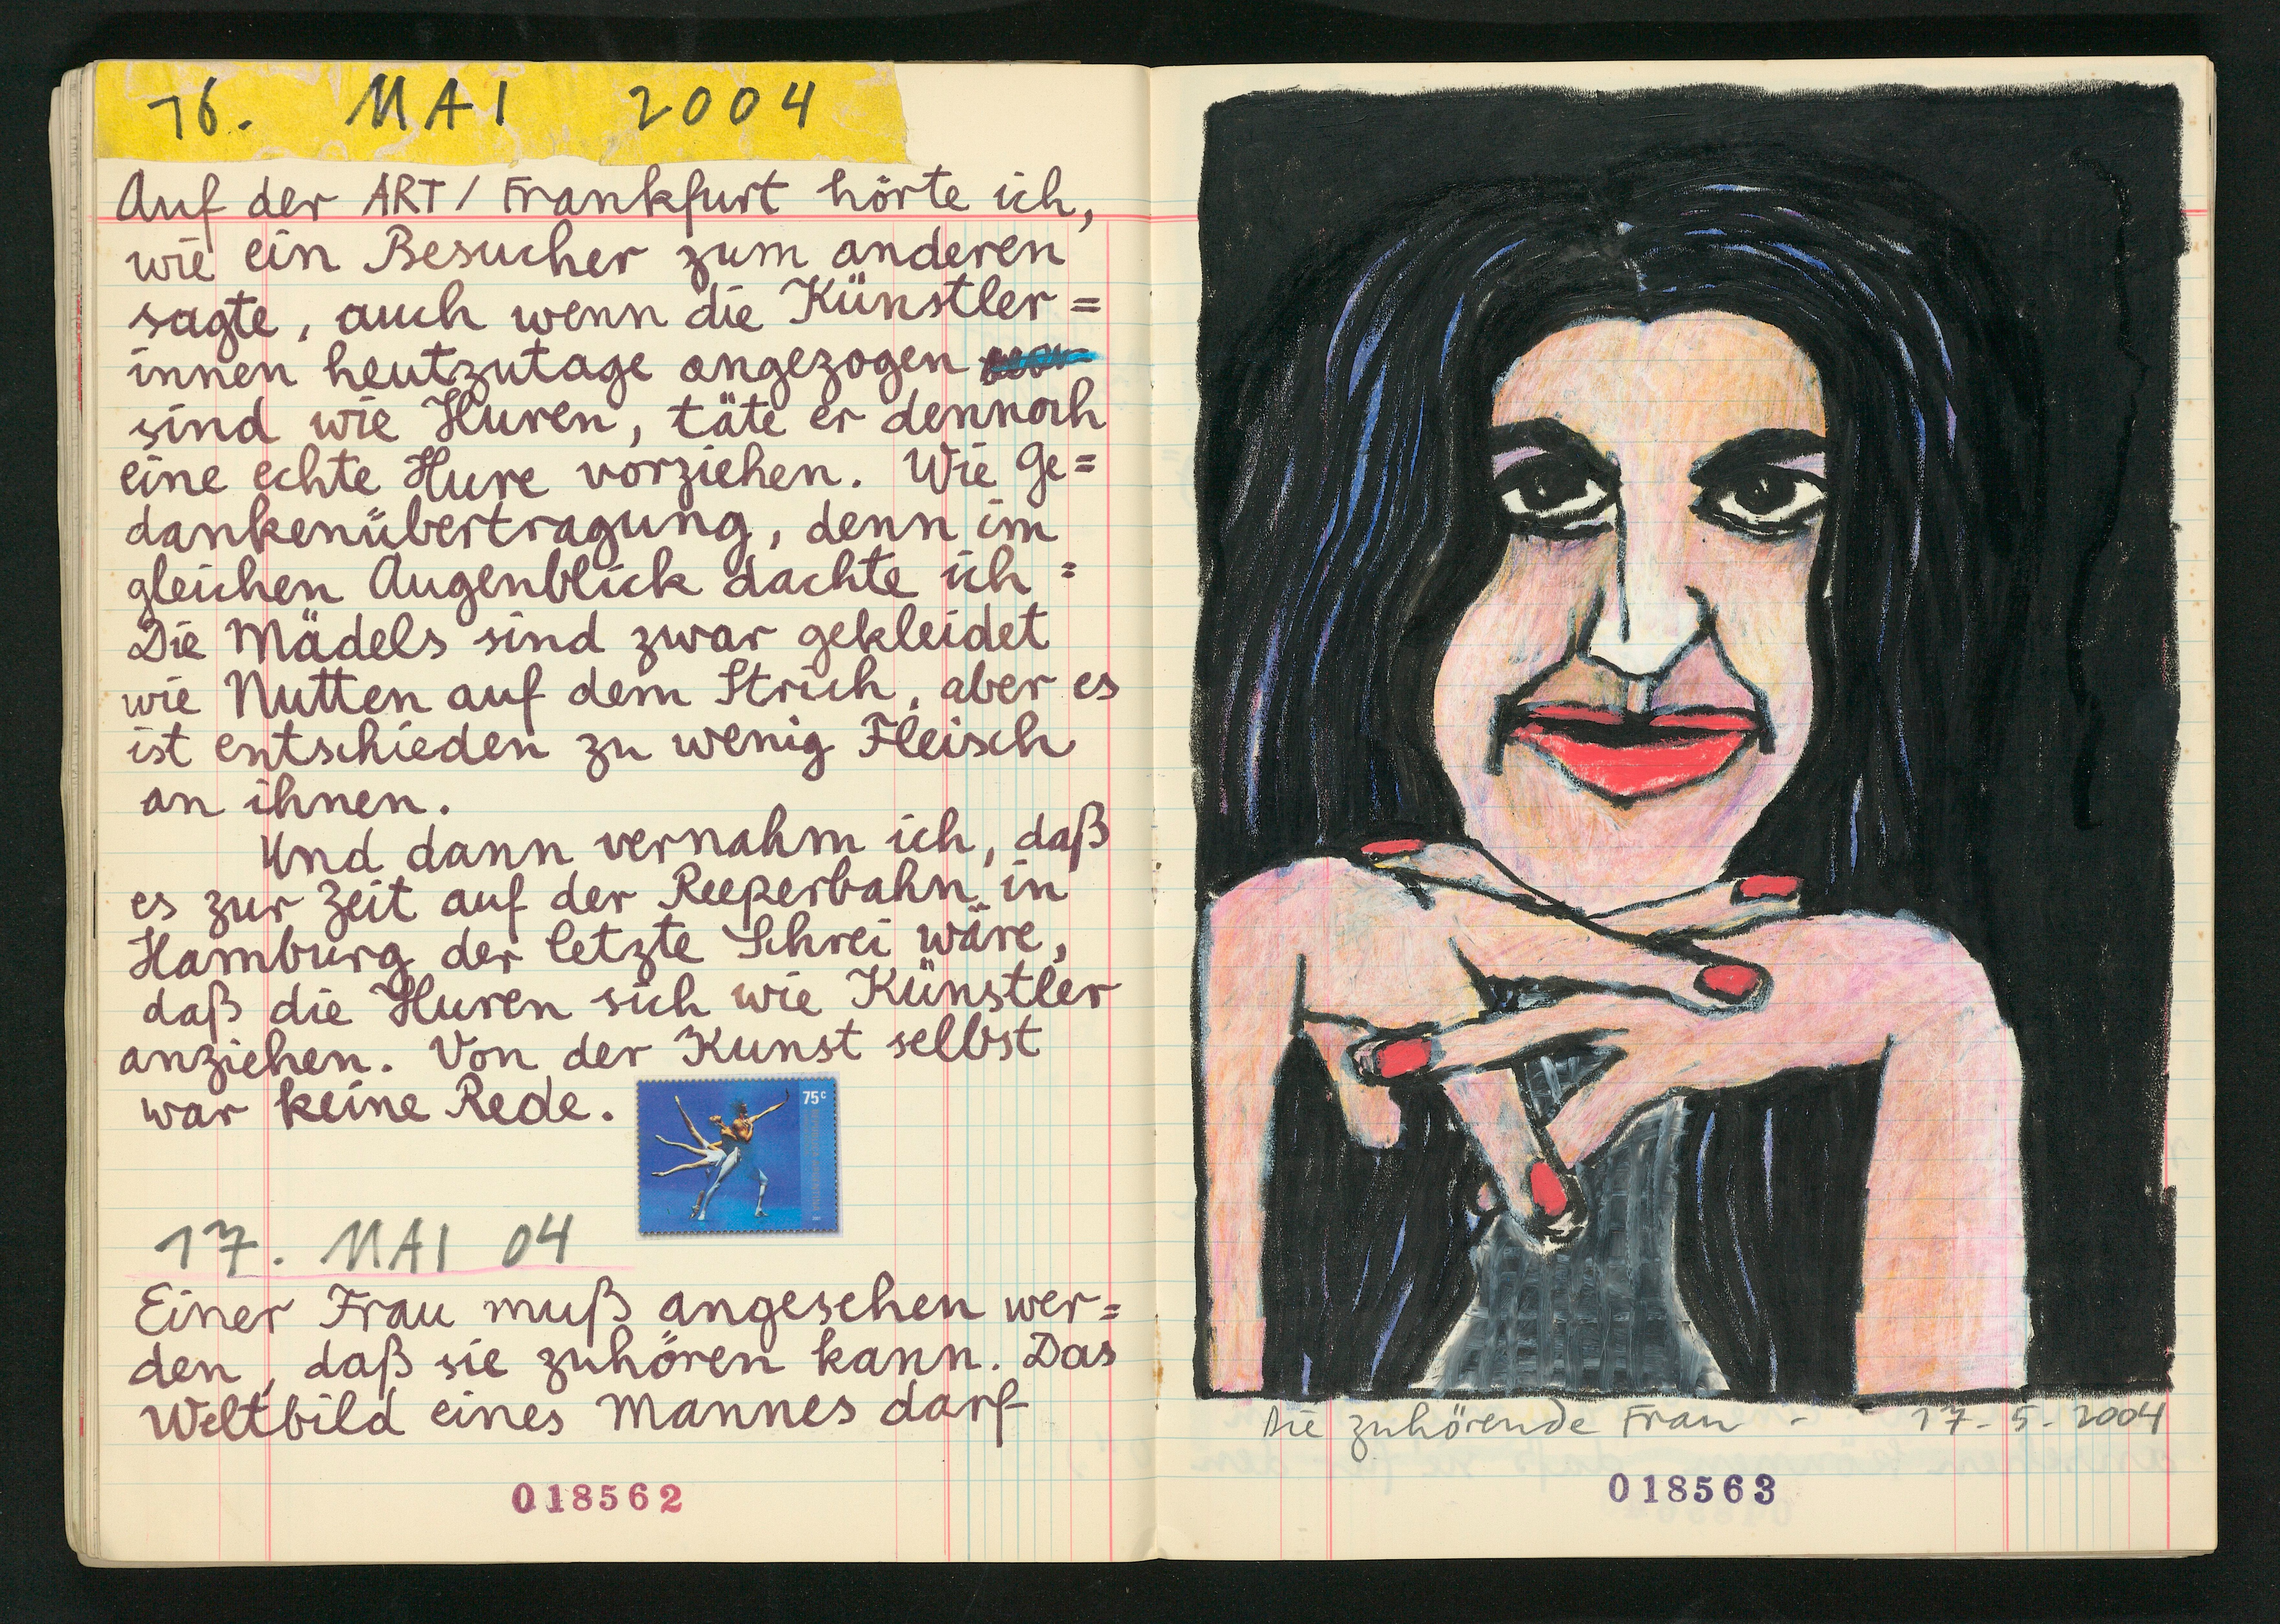 16. MAI 2004
Auf der ART/Frankfurt hörte ich,
wie ein Besucher zum anderen
sagte, auch wenn die Künstler=
innen heutzutage angezogen
sind wie Huren, täte er dennoch
eine echte Hure vorziehen. Wie Ge=
dankenübertragung, denn im
gleichen Augenblick dachte ich :
Die Mädels sind zwar gekleidet
wie Nutten auf dem Strich, aber es
ist entschieden zu wenig Fleisch
an ihnen.
Und dann vernahm ich, daß
es zur Zeit auf der Reeperbahn in
Hamburg der letzte Schrei wäre,
daß die Huren sich wie Künstler
anziehen. Von der Kunst selbst
war keine Rede.
75c
17. MAI 04
Einer Frau muß angesehen wer=
den, daß sie zuhören kann. Das
Weltbild eines Mannes darf
018562
Die zuhörende Frau - 17-5-2004
018563